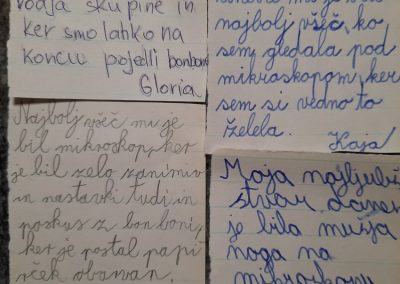 vodja skupine in
ker smo lahko na
koncu pojedli bonbone
Gloria
najbolj všeč, ko
sem gledala pod
mikroskopom, ker
sem si vedno to
želela.
Kaja
Najbolj všeč mi je
bil mikroskop, ker
je bil zelo zanimiv
in nastavki tudi in
poskus z bonboni,
ker je postal papi
rček obarvan.
Moja najljubša
stvar danes
je bila mušja
noga na
mikroskopu